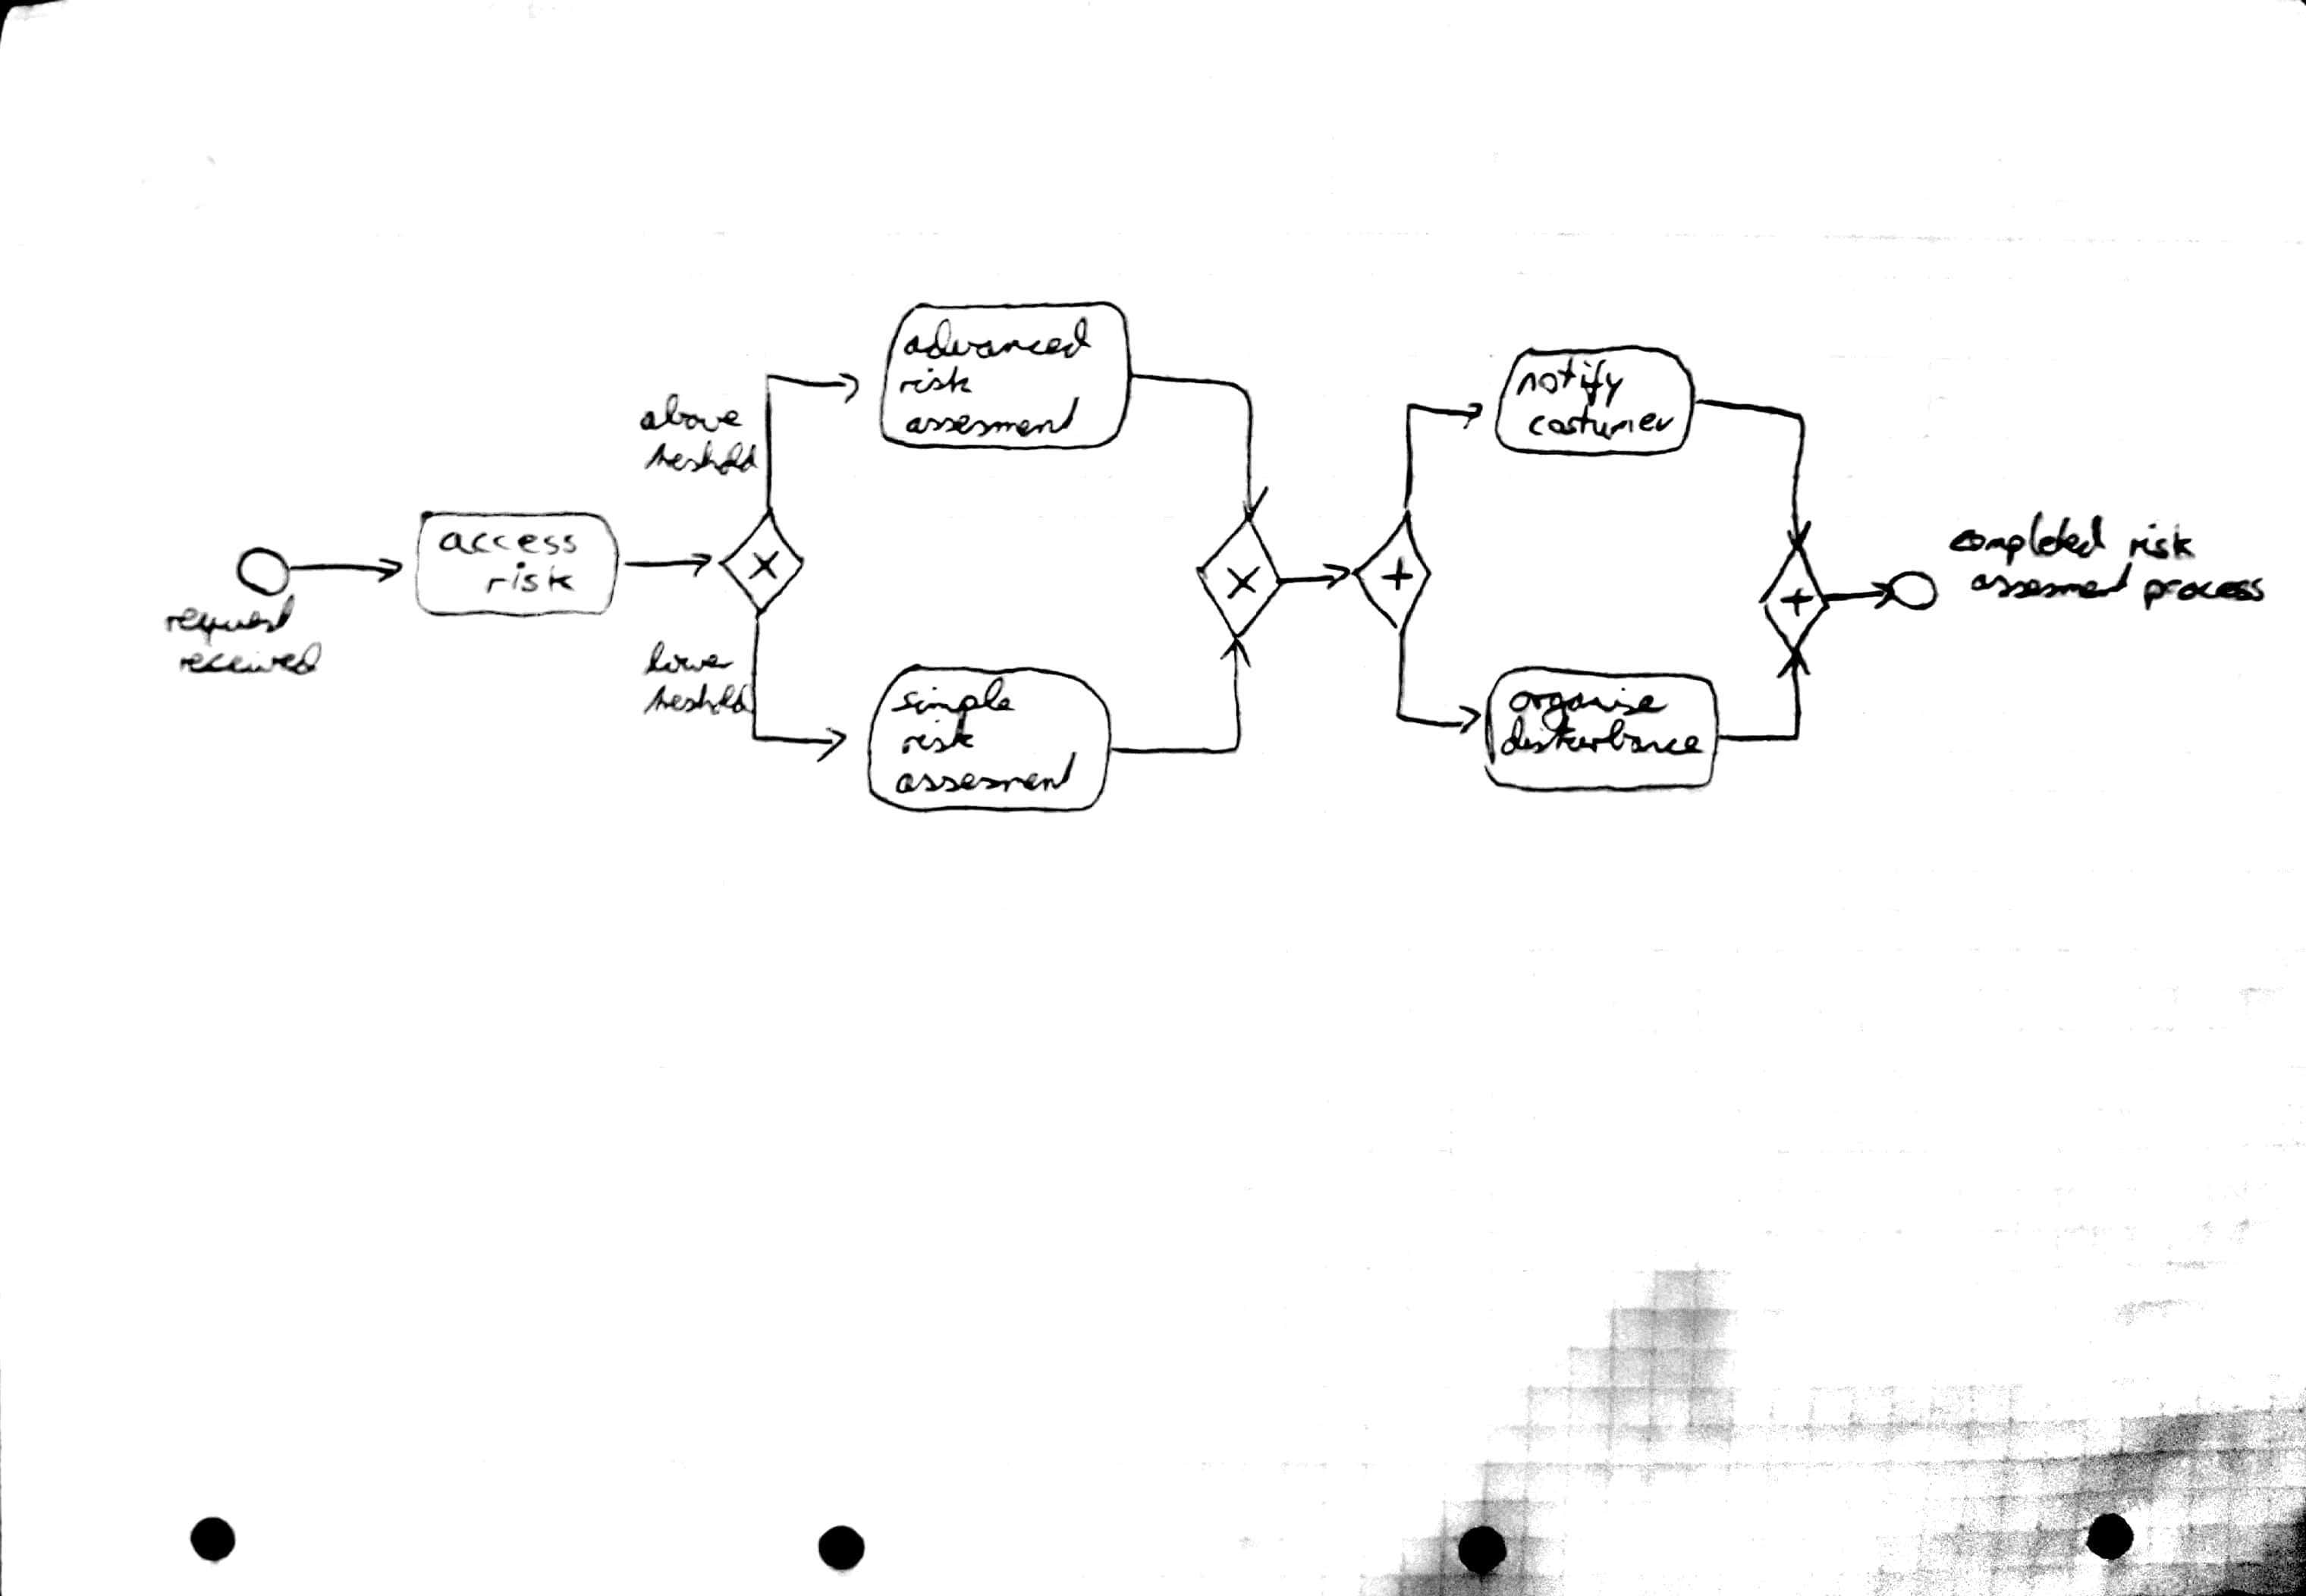 request
received
access
risk
above
treshold
lower
treshold
advanced
risk
assesment
simple
risk
assesment
notify
costumer
organise
disturbance
completed risk
assesment process